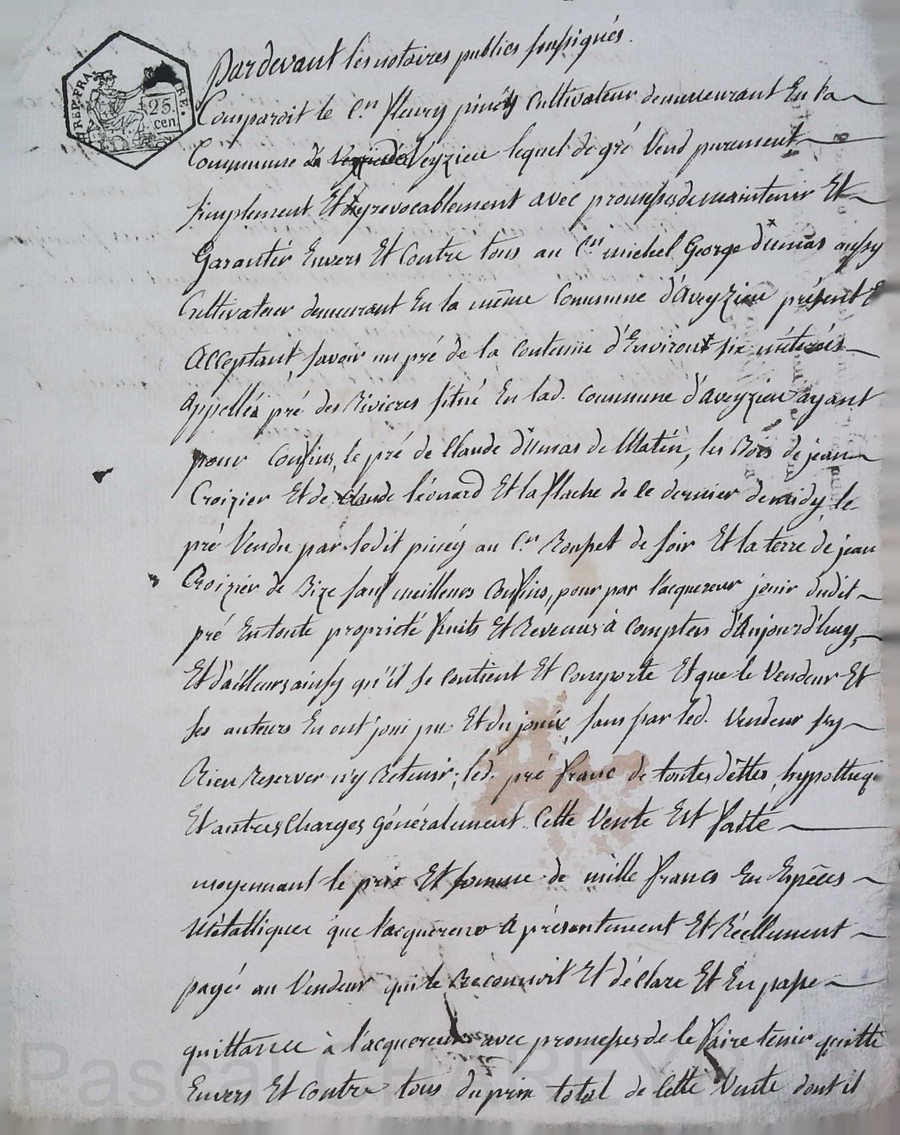 REP. FRA.
25.
cen.
Pardevant les notaires publics soussignés.
Comparoit le C.en fleury pinéy Cultivateur demeurant En la
Commune de Veyzieu lequel de gré Vend purement
simplement Et irrevocablement avec promesse de maintenir Et
Garantir Envers Et Contre tous au C.en michel George dumas aussy
Cultivateur demeurant En la même Commune d'Aveyzieu présent E
Acceptant, savoir un pré de la Contenue d'Environ six métérés
Appellés pré des Rivieres situé En lad. Commune d'aveyzieu ayant
pour Confins, le pré de Claude dumas de Matin, les Bois de jean
Croizier Et de Claude léonard Et la flache de Ce dernier de midy, le
pré Vendu par ledit pinéy au C.en Roupet de soir Et la terre de jean
Croizier de Bize sauf meilleures Confins, pour par l'acquereur jouir dudit
pré En toute propriété fruits Et Revenus à Compter d'Aujourd'huy,
Et d'ailleurs ainsy qu'il se Contient Et Comporte Et que le Vendeur Et
ses auteurs En ont joui pu Et du jouir, sans par led. Vendeur s'y
Rien Reserver n'y Retenir; led. pré franc de toutes dèttes, hypotheq
Et autres Charges généralement. Cette Vente Est faitte
moyennant le prix Et somme de mille francs En Espèces
Métalliques que l'acquereur a présentement Et Réellement
payé au Vendeur qui le Reconnoit Et déclare Et En passe
quittance à l'acquereur avec promesse de le faire tenir quitte
Envers Et Contre tous du prix total de Cette Vente dont il
Pascal